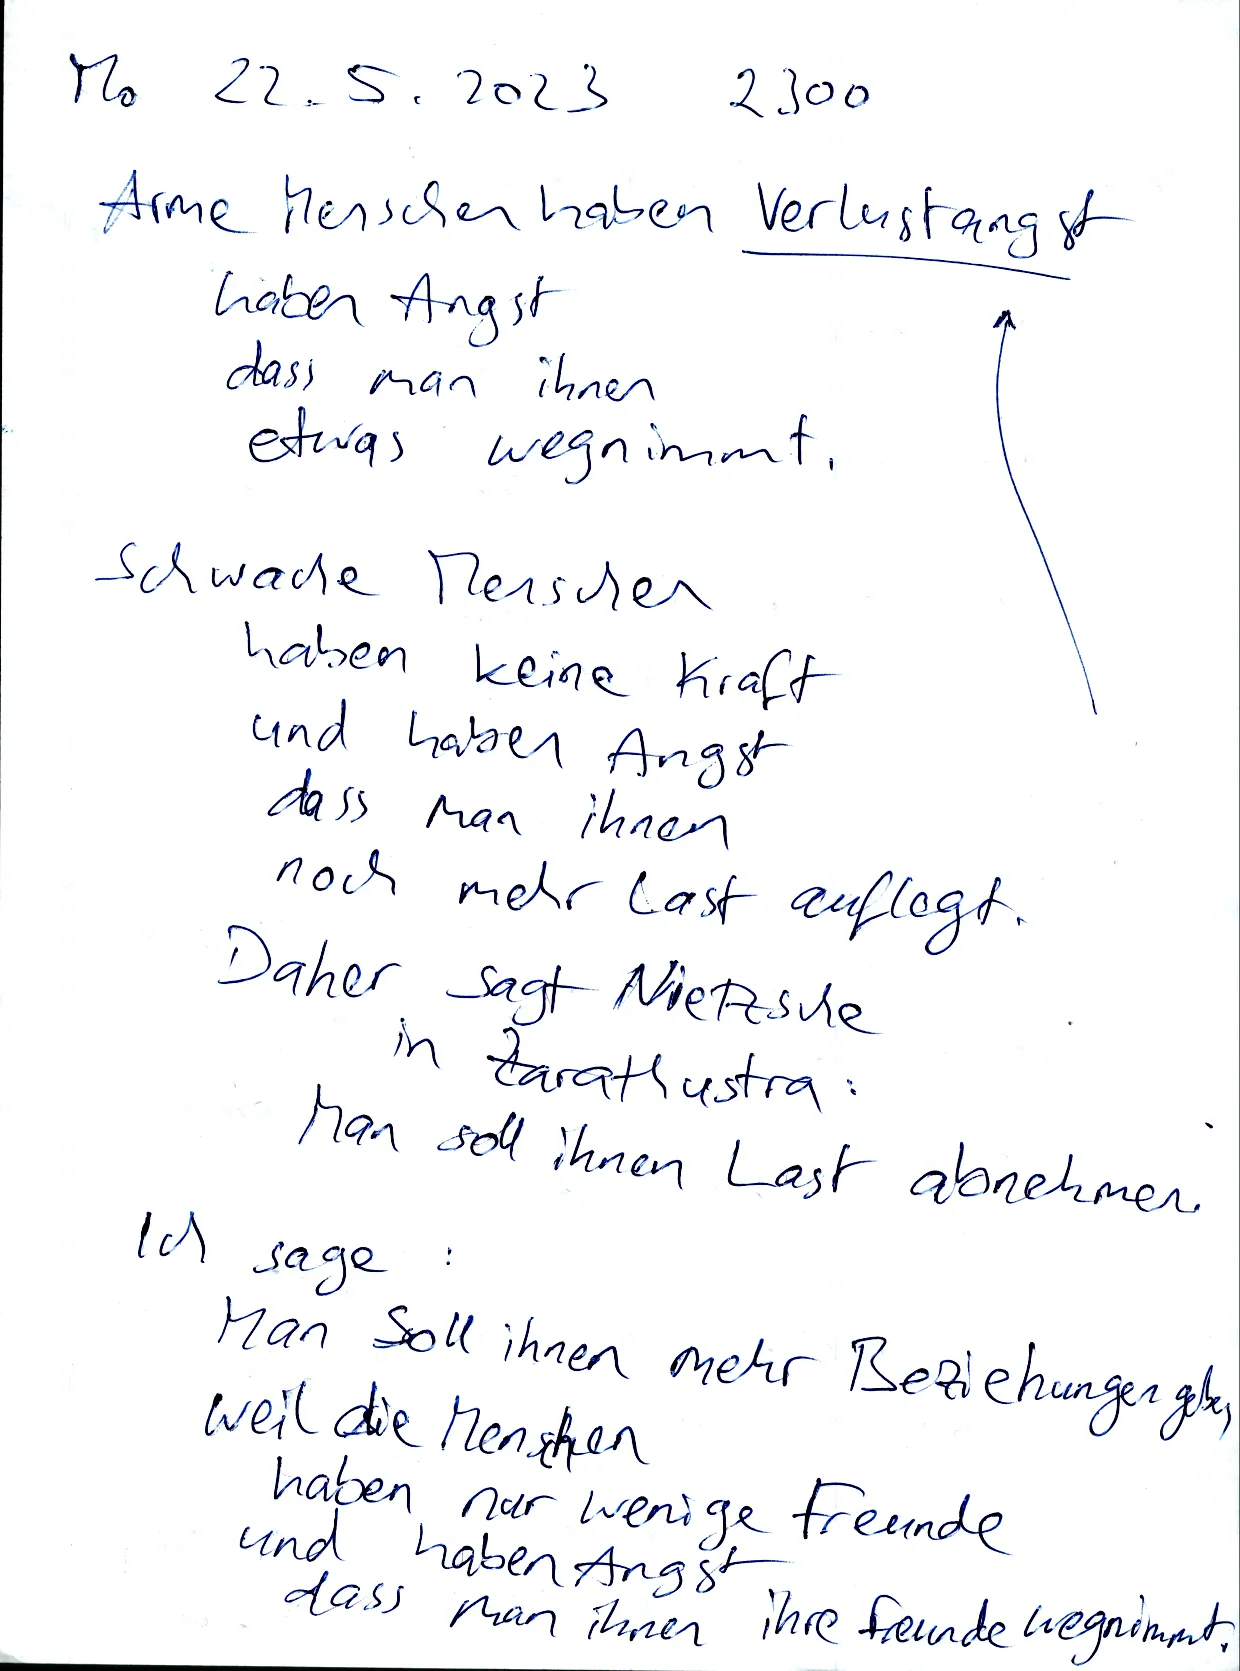 Mo 22.5.2023 2300
Arme Menschen haben Verlustangst
haben Angst
dass man ihnen
etwas wegnimmt.
Schwache Menschen
haben keine Kraft
und haben Angst
dass man ihnen
noch mehr Last auflegt.
Daher sagt Nietzsche
in Zarathustra:
Man soll ihnen Last abnehmen.
Ich sage:
Man soll ihnen mehr Beziehungen geben,
weil die Menschen
haben nur wenige Freunde
und haben Angst
dass man ihnen ihre Freunde wegnimmt.